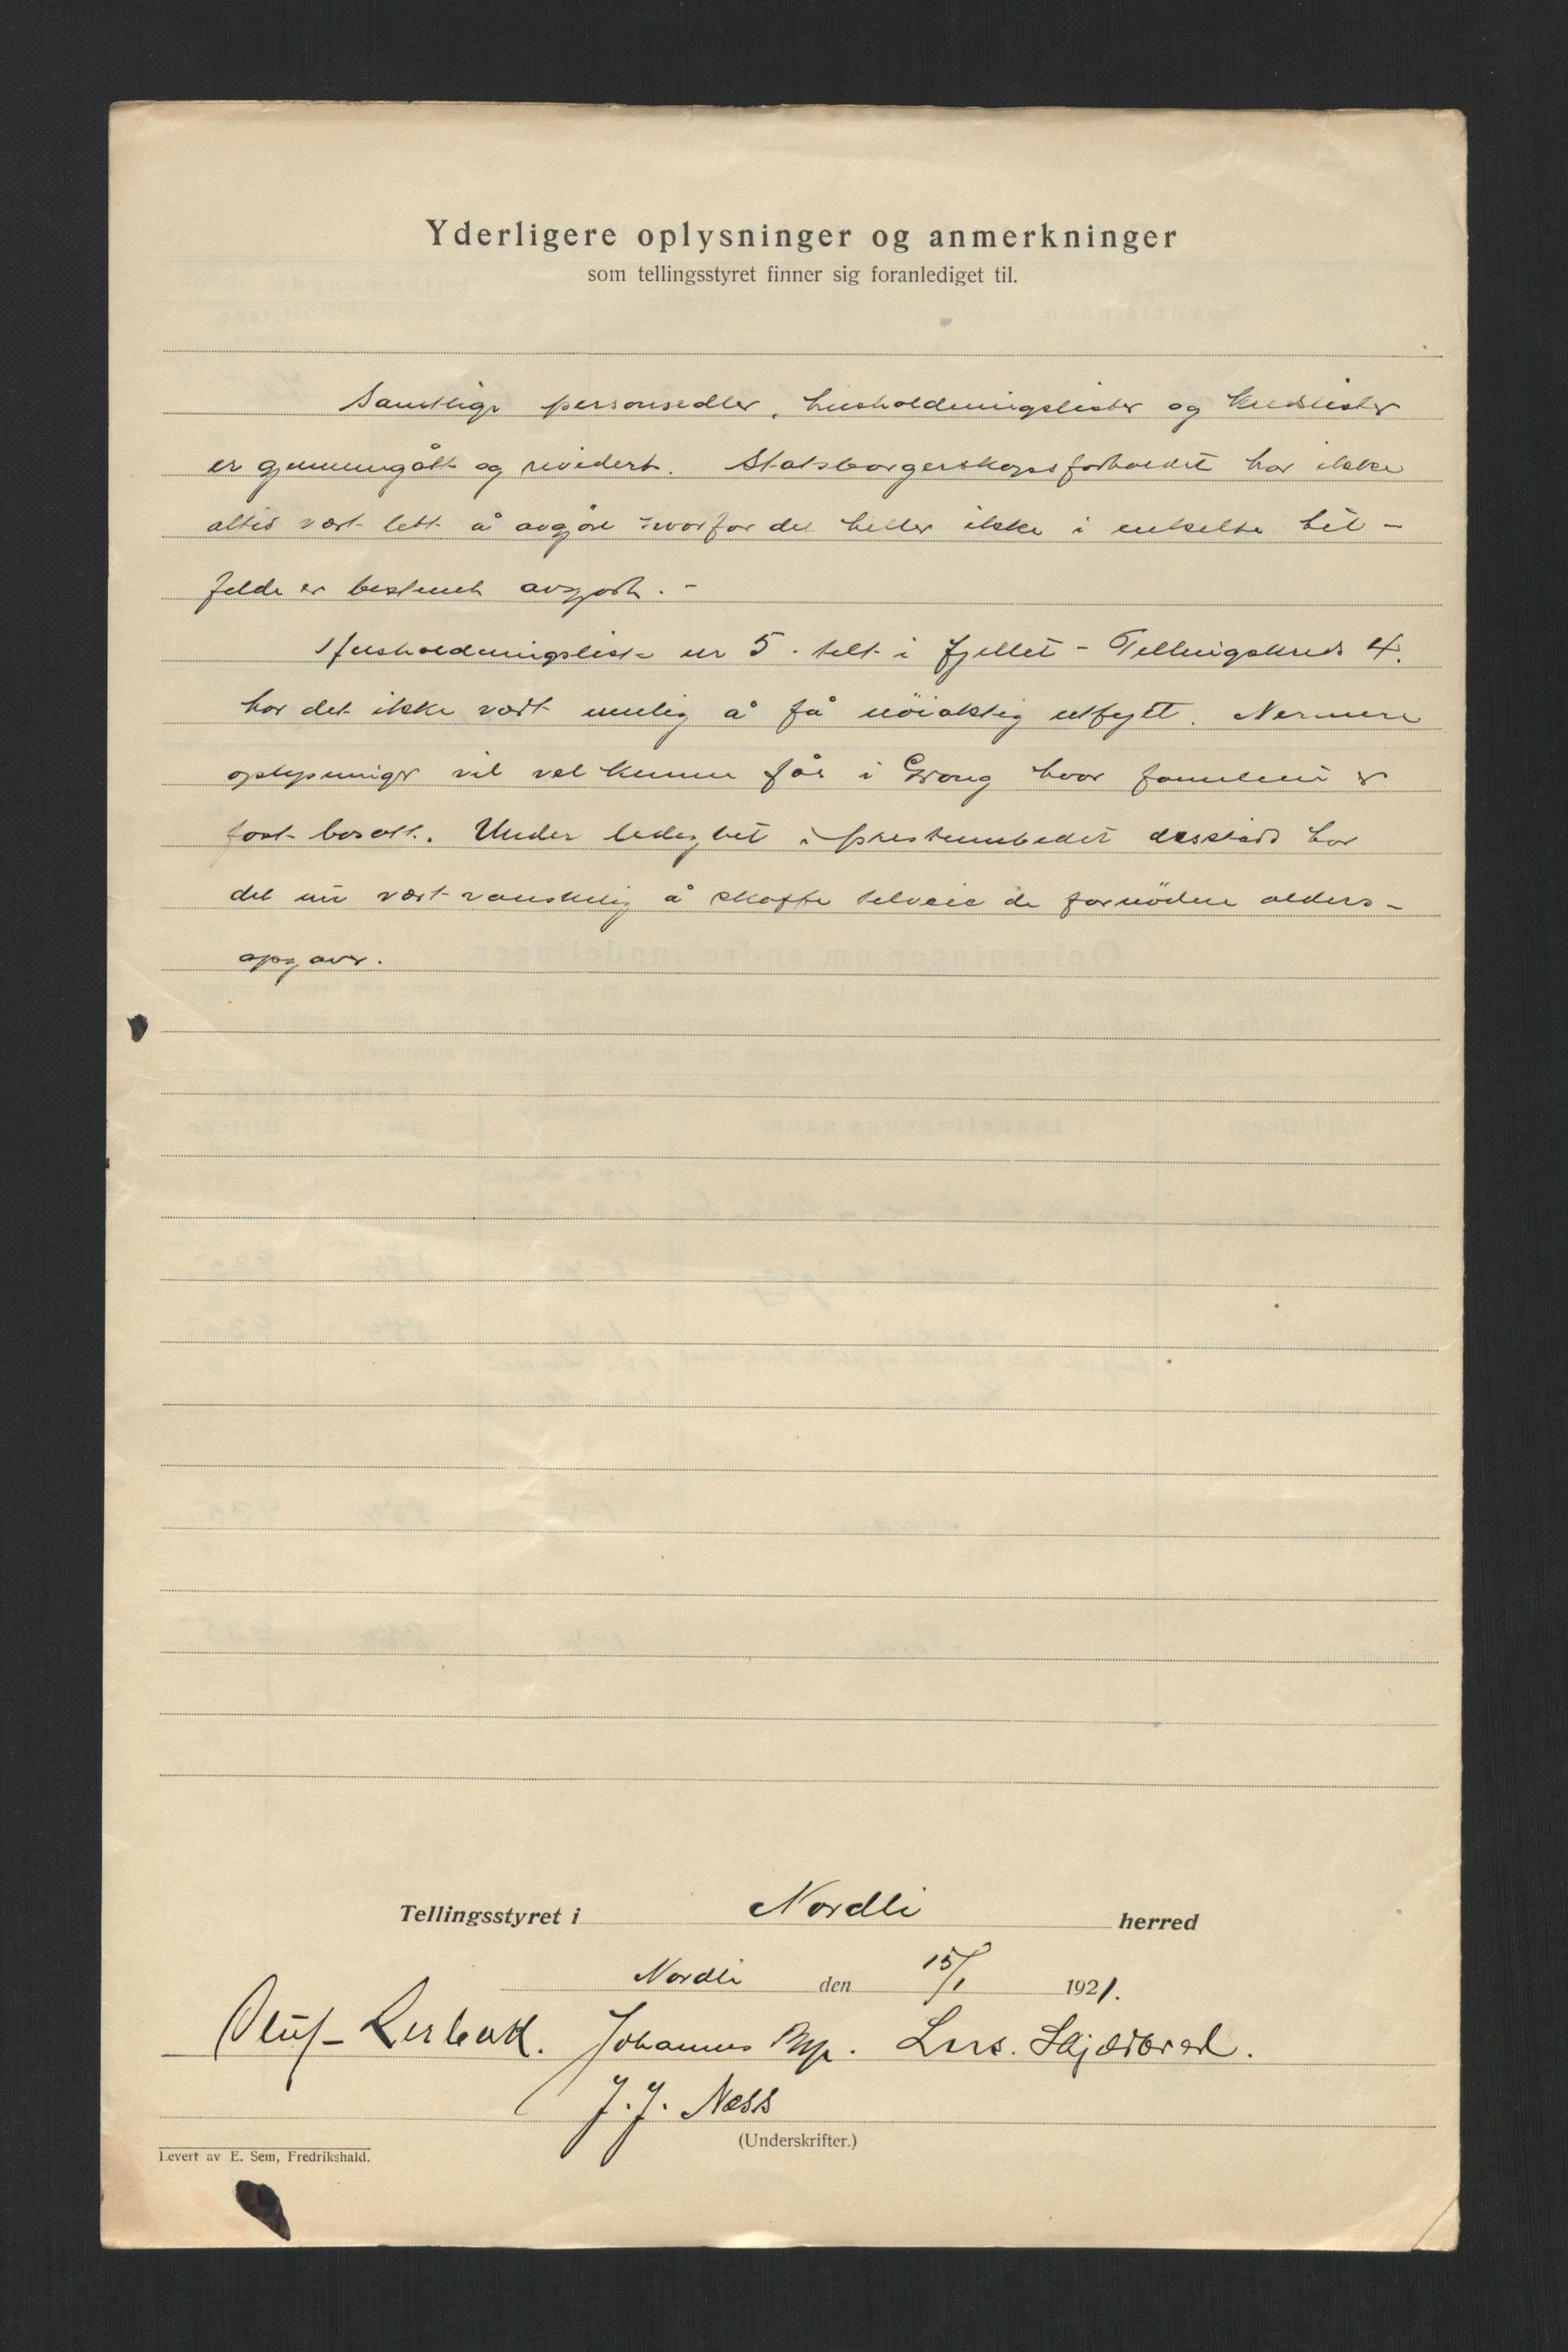 Yderligere oplysninger og anmerkninger
som tellingsstyret finner sig foranlediget til.
Samtlige personsedler, husholdningslister og kredslister
er gjennemgått og revidert. Statsborgerskapsforholdet har ikke
altid vært lett å avgjøre hvorfor det heller ikke i enkelte til-
felde er bestemt avgjort. -
Husholdningsliste nr 5. telt i fjellet - Tellingskreds 4.
har det ikke vært mulig å få nöiaktig utfyllt. Nermere
oplysninger vil vel kunne fåes i Grong hvor familien er
fast bosatt. Under ledighet i presteembedet dessteds har
det nu vært vanskelig å skaffe tilveie de fornödne alders-
opgaver.
Tellingsstyret i Nordli herred
Nordli den 15/1 1921.
Oluf Lerbakk. Johannes Lars.
J. J. Ness
(Underskrifter.)
Levert av E. Sem, Fredrikshald.